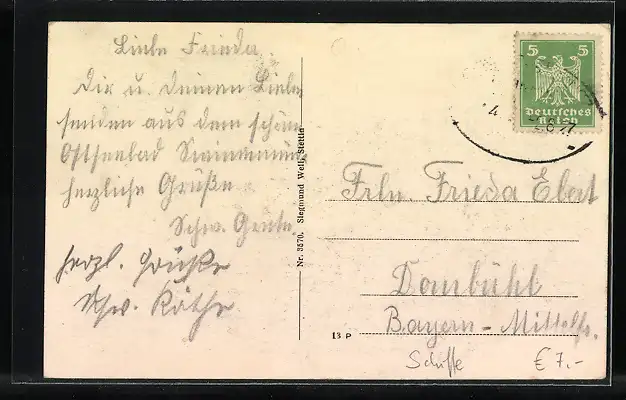 Liebe Frieda.
Dir u. Deinen Lieben
senden aus dem schönen
Ostseebad Swinemünde
herzliche Grüße
Schw. Grete.
herzl. Grüße
Schw. Käthe
Nr. 3570. Siegmund Weil, Stettin
5 5
Deutsches
Reich
Frln. Frieda Ebert
Dombühl
Bayern-Mittelfr.
13 P
Schiffe € 7.-